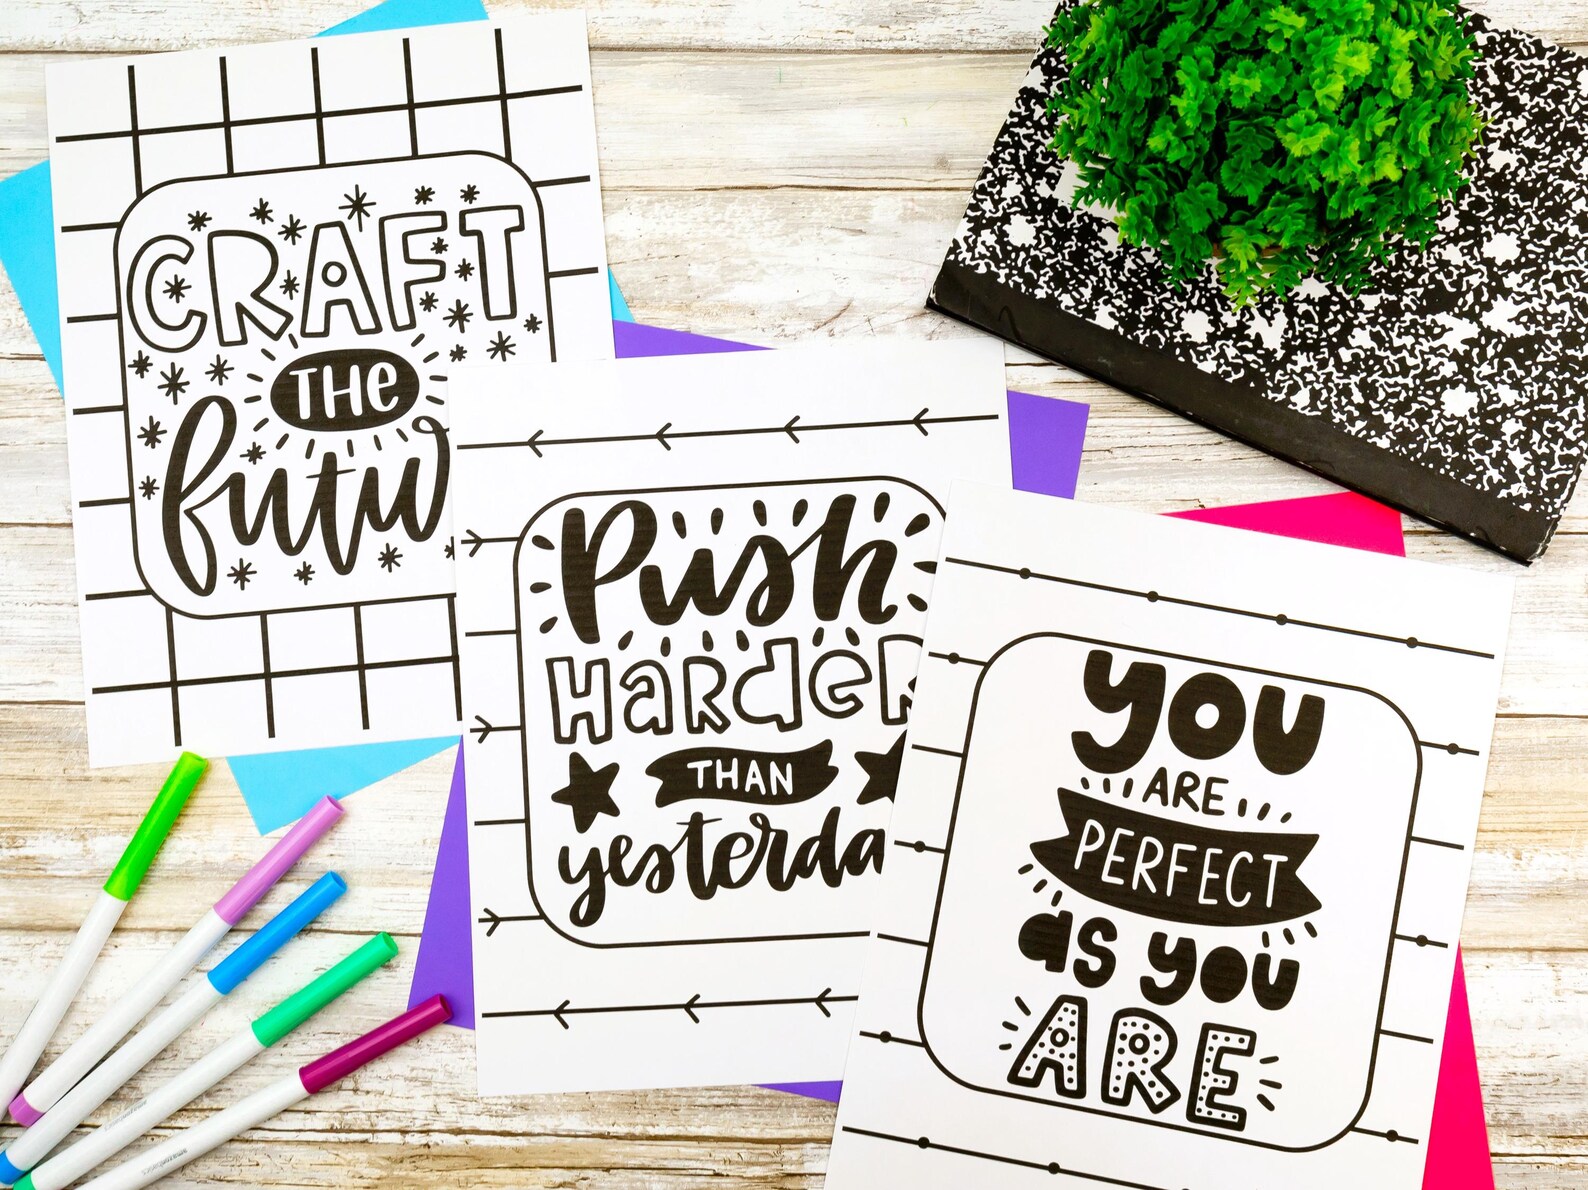 CRAFT
THE
futu
Push
Harder
THAN
yesterda
You
ARE
PERFECT
as you
ARE